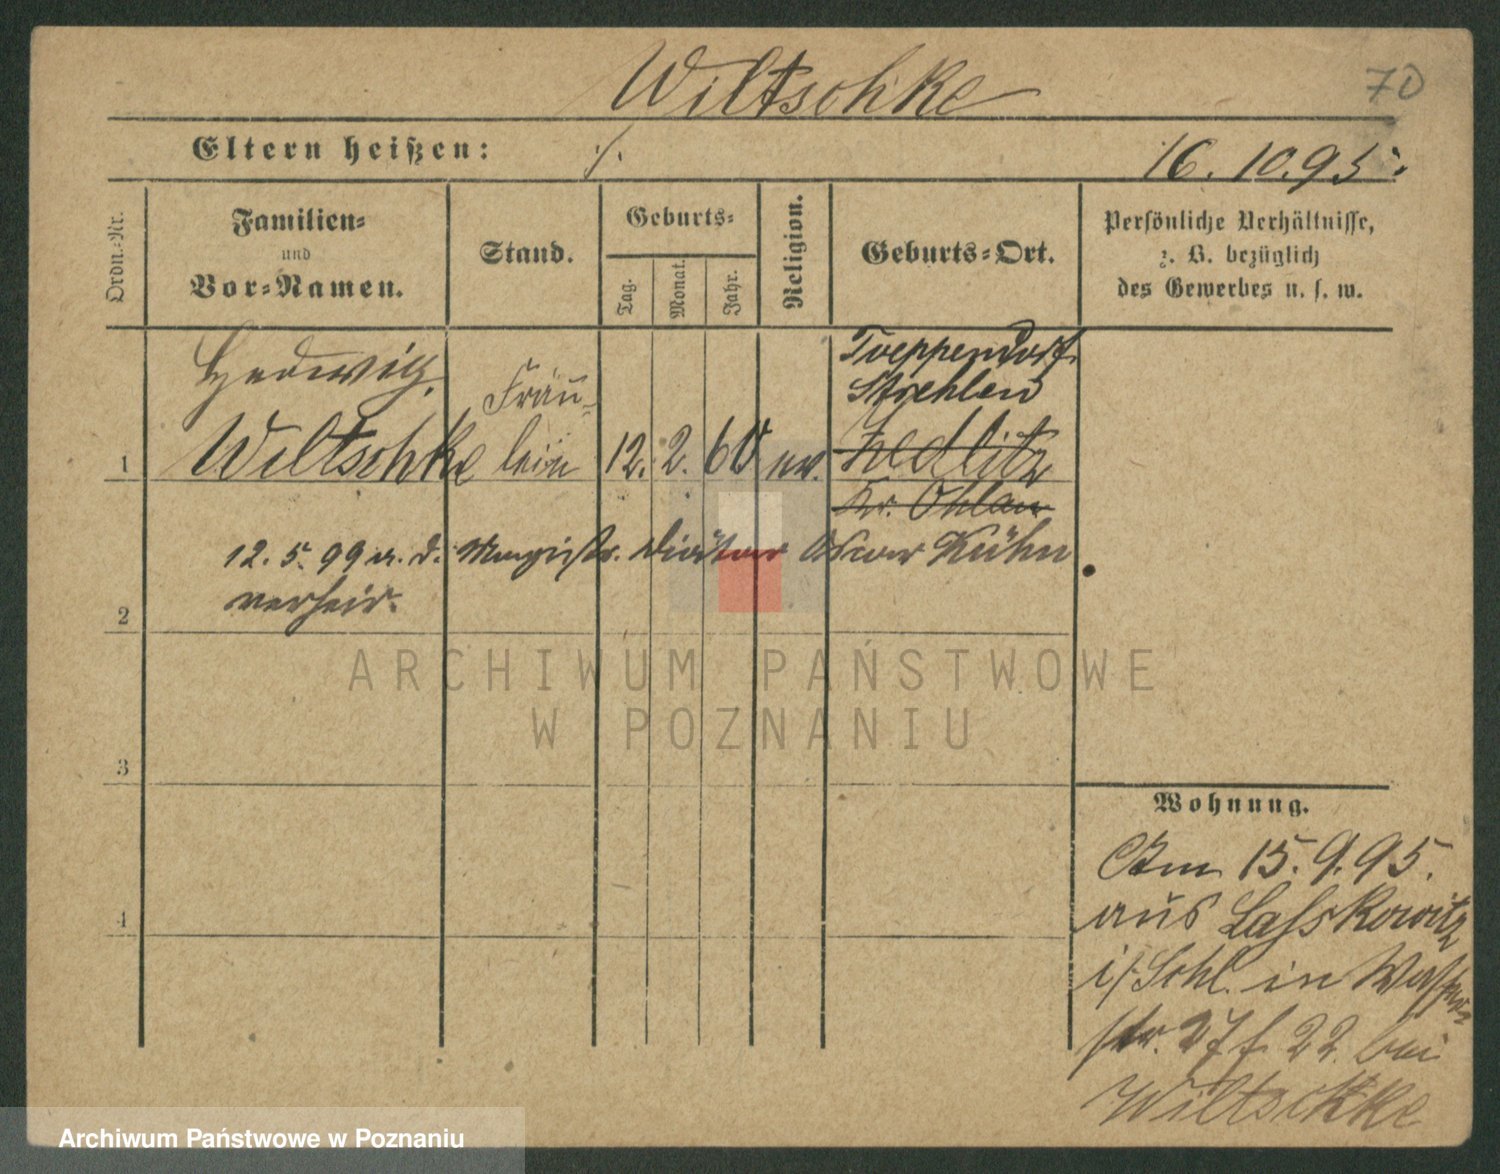 Wiltschke
70
Eltern heißen: ./.
16.10.95.
Ordn.-Nr.
Familien-
und
Vor-Namen.
Stand.
Geburts-
Tag.
Monat.
Jahr.
Religion.
Geburts-Ort.
Persönliche Verhältnisse,
z. B. bezüglich
des Gewerbes u. s. w.
Hedwig
Wiltschke
Fräu-
lein
1
12. 2. 60
ev.
Toeppendorf
Strehlen
Zedlitz
Kr. Ohlau
12. 5. 99 m. d. Magistr. Diätar Oscar Kühn
verheir.
2
3
4
Wohnung.
Am 15.9.95.
aus Lasskowitz
i/Schl. in Wasser-
str. 27 f. 22. bei
Wiltschke
ARCHIWUM PAŃSTWOWE
W POZNANIU
Archiwum Państwowe w Poznaniu